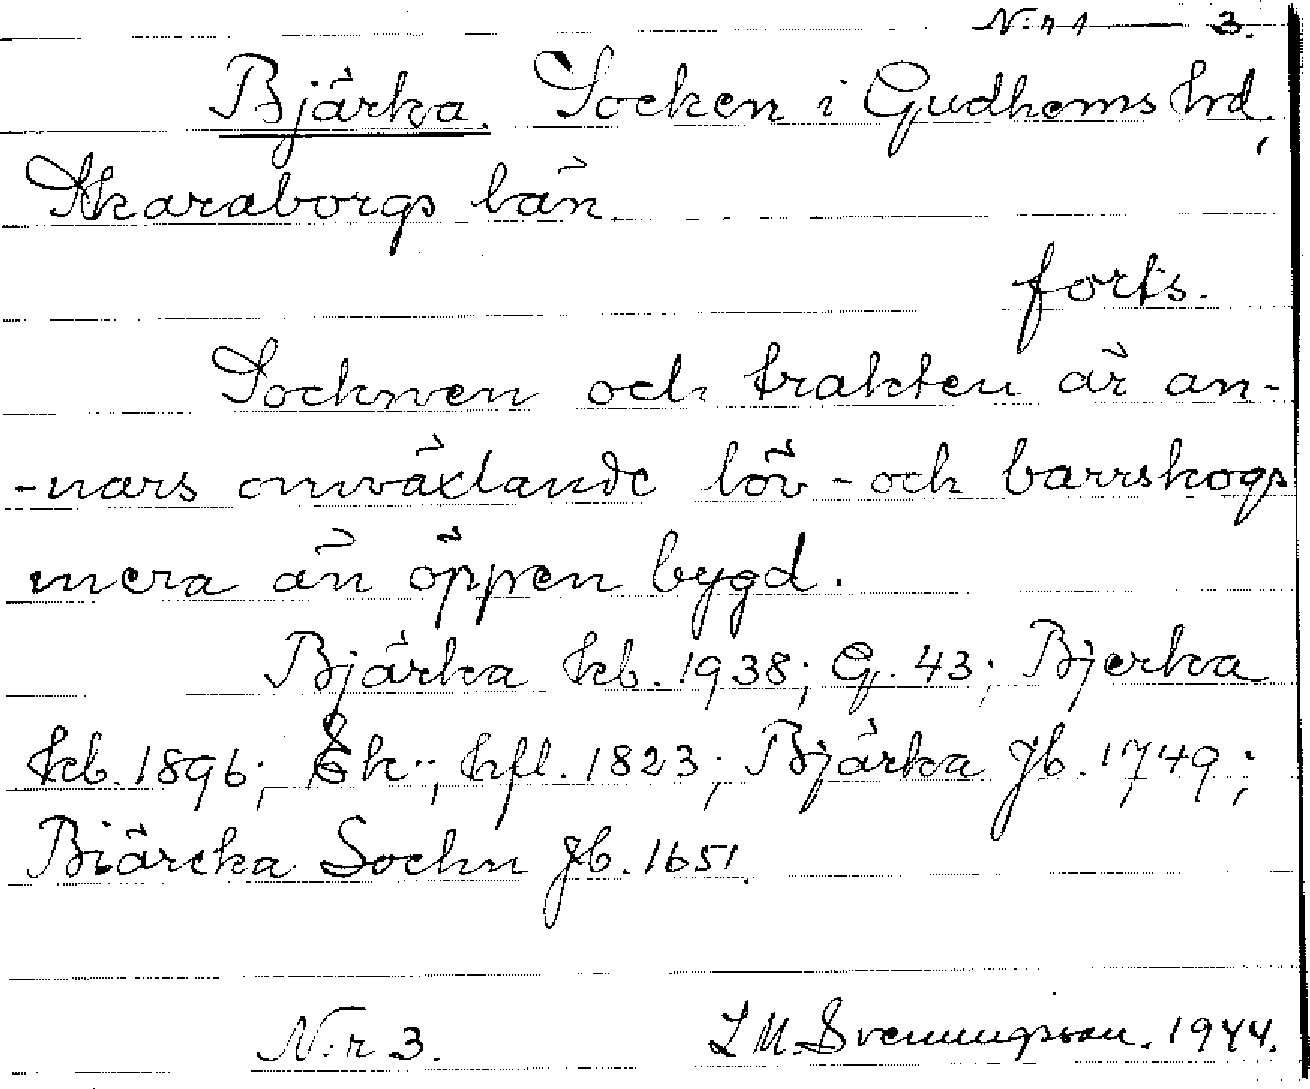 N:r 1 — 3.
Bjärka. Socken i Gudhems hrd,
Skaraborgs län.
forts.
Socknen och trakten är an-
-nars omväxlande löv- och barrskogs
mera än öppen bygd.
Bjärka kb. 1938; G. 43; Bjerka
kb. 1896; Ek:; hfl. 1823; Bjärka Jb. 1749;
Biärcka Sochn Jb. 1651.
N:r 3. L M. Svenungsson. 1944.